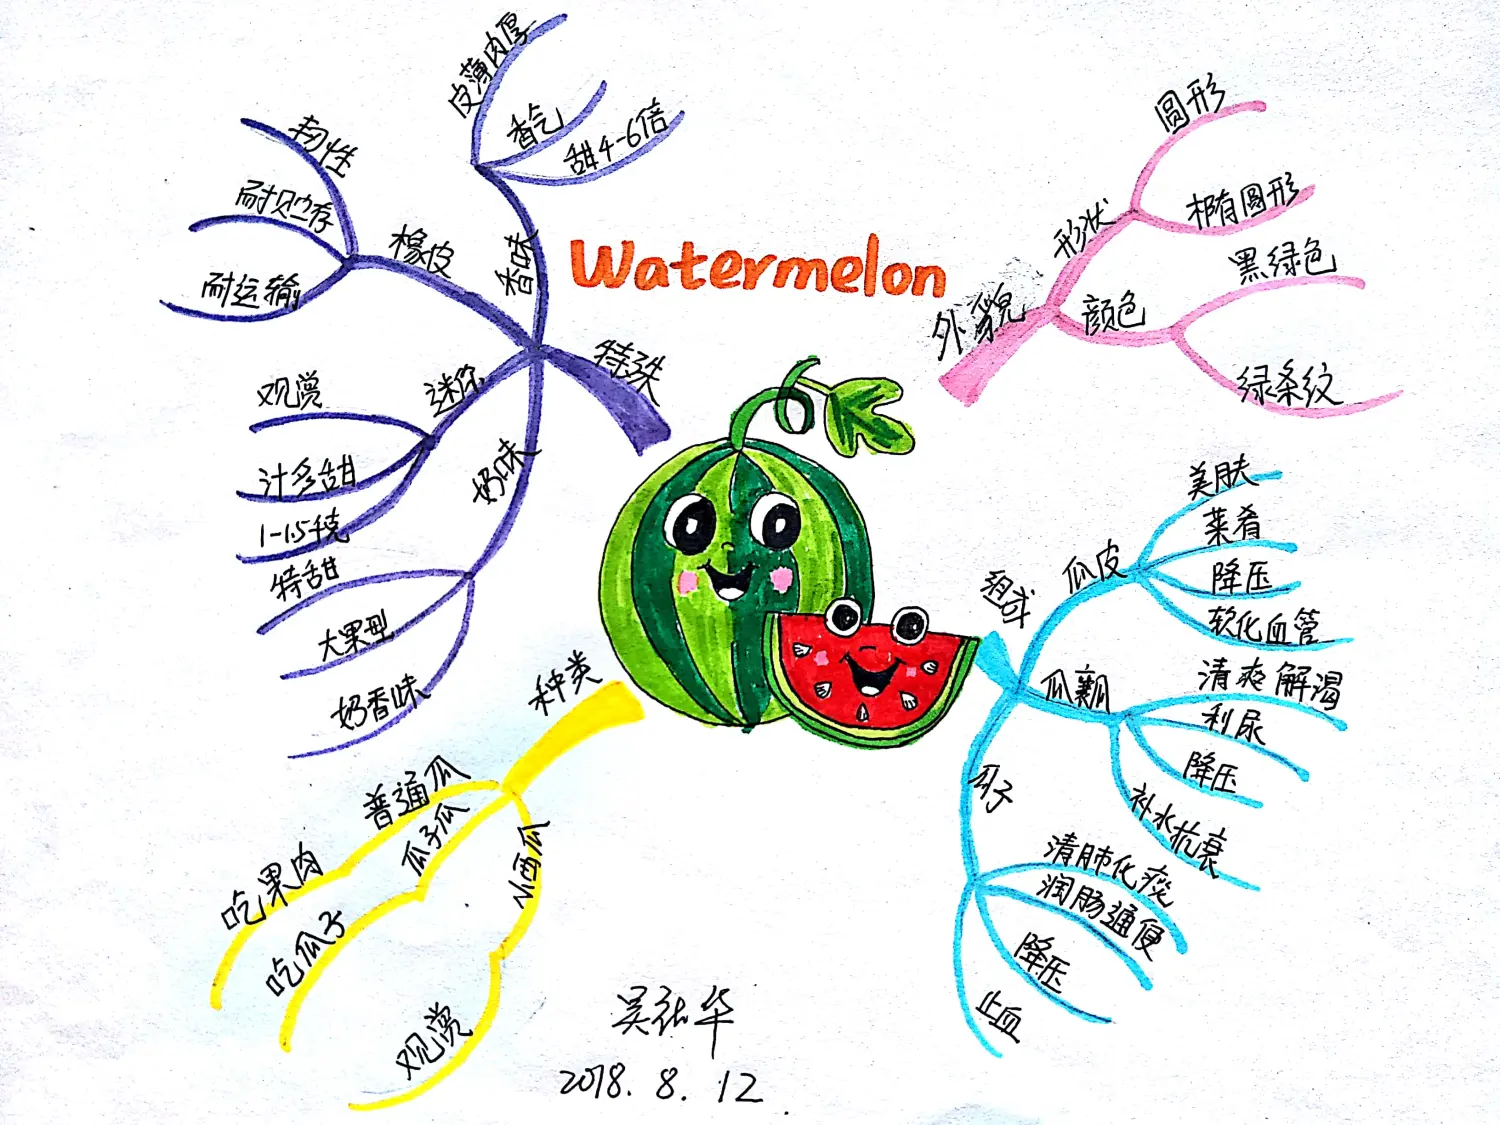 Watermelon
外貌
形状
圆形
椭圆形
颜色
黑绿色
绿条纹
组成
瓜皮
美肤
菜肴
降压
软化血管
瓜瓤
清爽解渴
利尿
降压
补水抗衰
瓜子
清肺化痰
润肠通便
降压
止血
种类
普通瓜
吃果肉
瓜子瓜
吃瓜子
小西瓜
观赏
特殊
香味
皮薄肉厚
香气
甜4-6倍
橡皮
韧性
耐贮存
耐运输
迷你
观赏
汁多甜
1-1.5千克
奶味
特甜
大果型
奶香味
2018.8.12